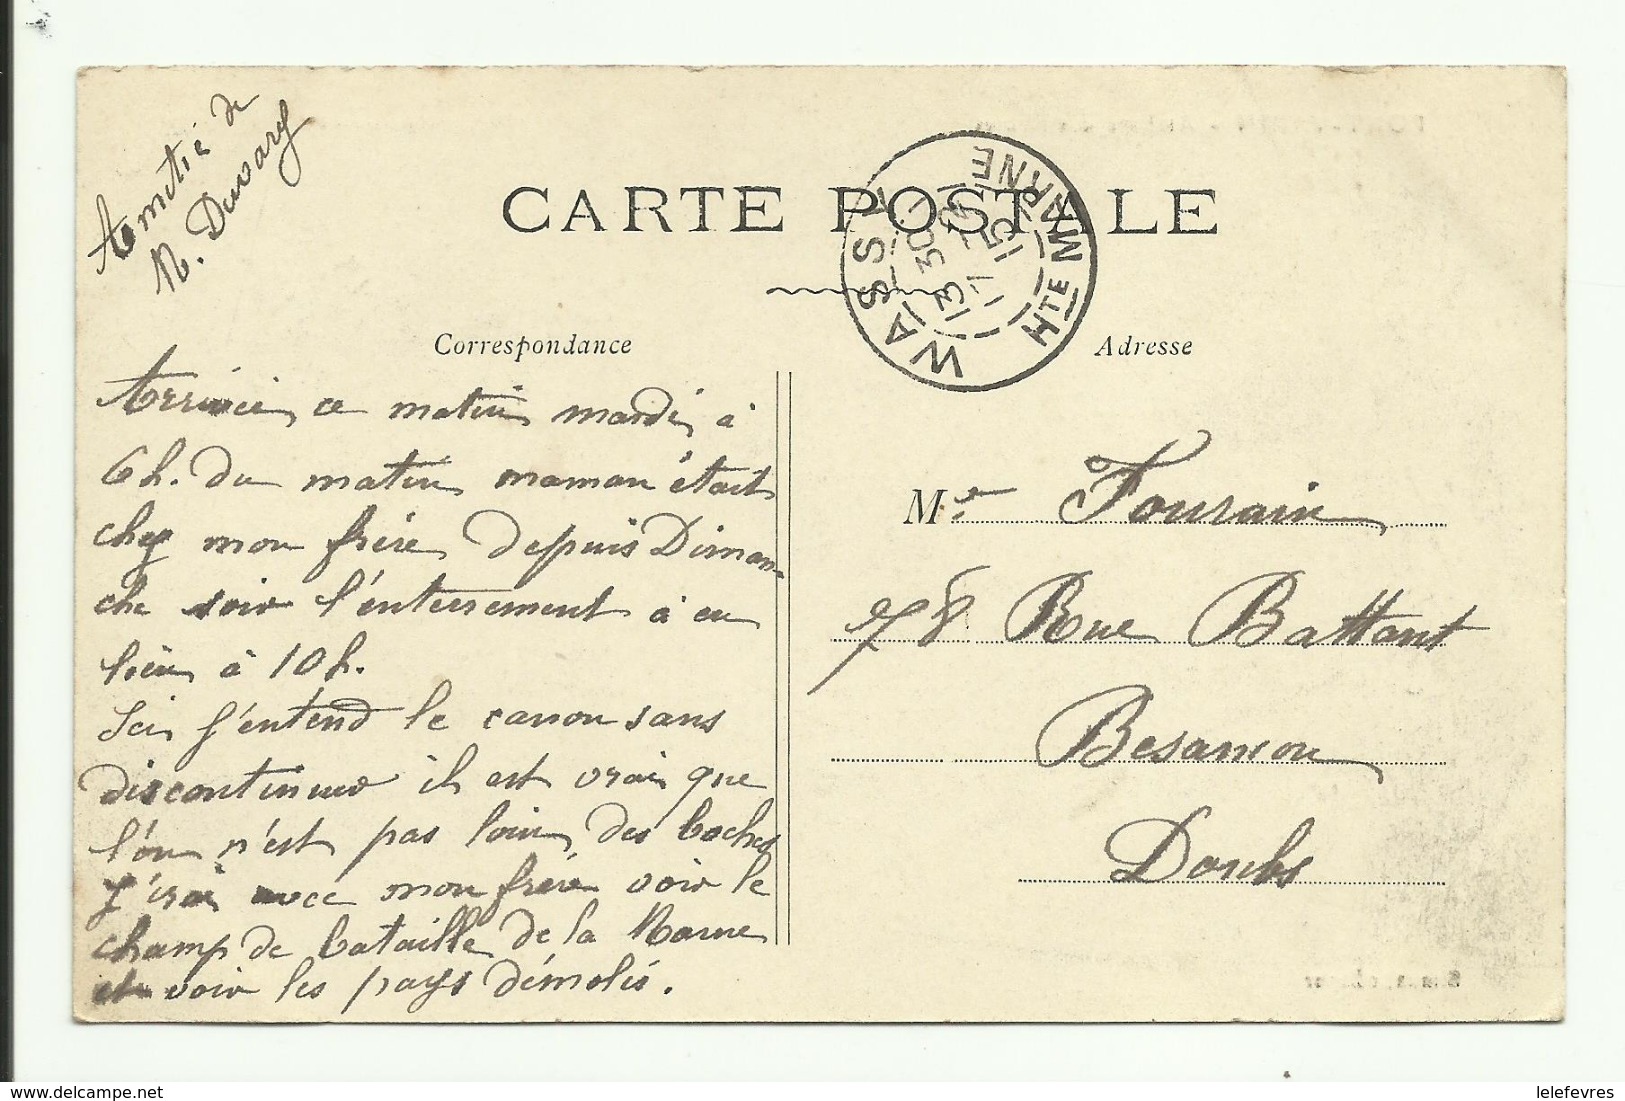 Amitié de
N. Duvary
CARTE POSTALE
WASSY
13 30
15
HTE MARNE
Correspondance
Adresse
Arrivée ce matin mardi à
6h. du matin maman était
chez mon frère depuis Diman-
che soir l'enterrement à eu
lieu à 10h.
Ici j'entend le canon sans
discontinuer il est vrai que
l'on n'est pas loin des boches
j'irai avec mon frère voir le
champ de bataille de la Marne
et voir les pays démolis.
Mr Fourain
78 Rue Battant
Besançon
Doubs
lelefevres